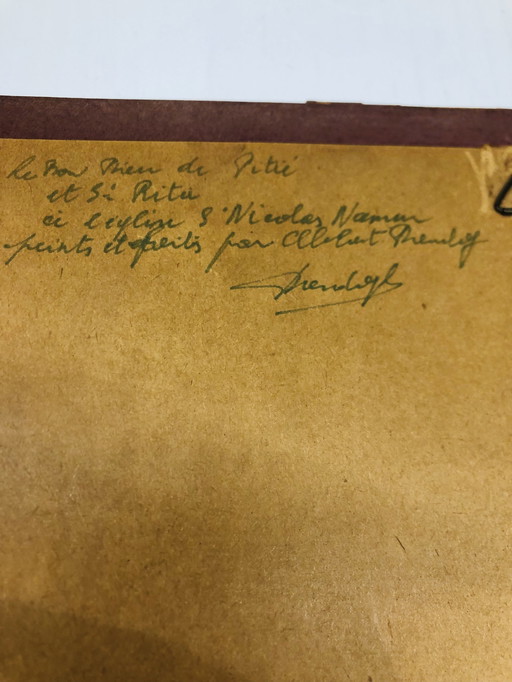 Le Bon Dieu de Pitié
et Ste Rita
à l'eglise S. Nicolas Namur
peints et par Albert